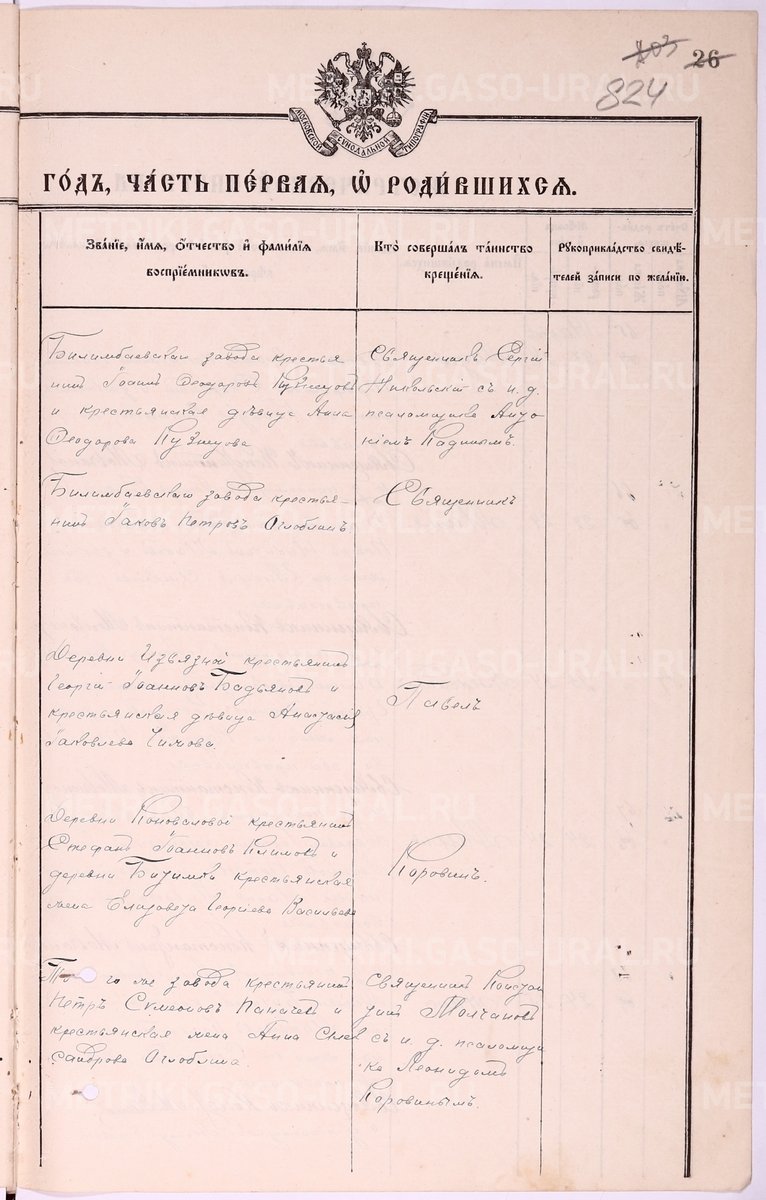 203
26
824
МОСКОВСКОЙ СѴНОДАЛЬНОЙ ТИПОГРАФІИ
ГО́ДЪ, ЧА́СТЬ ПЕ́РВАЯ, Ѡ РОДИ́ВШИХСЯ.
Зва́нїе, и́мя, о́тчество и фами́лїя
воспрїе́мниковъ.
Кто̀ соверша́лъ та́инство
креще́нїя.
Рꙋкоприкла́дство свидѣ́-
телей за́писи по жела́нїю.
Билимбаевскаго завода крестья
нинъ Іоаннъ Ѳеодоровъ Кузнецовъ
и крестьянская дѣвица Анна
Ѳеодорова Кузнецова
Священникъ Сергій
Никольскій съ и. д.
псаломщика
Билимбаевскаго завода крестья-
нинъ Іаковъ Петровъ Оглоблинъ
Священникъ
Деревни Извязной крестьянинъ
Георгій Іоанновъ и
крестьянская дѣвица Анастасія
Іаковлева
Павелъ
Деревни Коноваловой крестьянинъ
Стефанъ Іоанновъ Климовъ и
деревни Битимки крестьянская
жена Елизавета Георгіева Васильева
Коровинъ.
го же завода крестьянинъ
Петръ Симеоновъ и
крестьянская жена Анна Алек
сандрова Оглоблина.
Священникъ Констан
тинъ Молчановъ
съ и. д. псаломщи
ка Леонидомъ
Коровинымъ.
METRIKI.GASO-URAL.RU